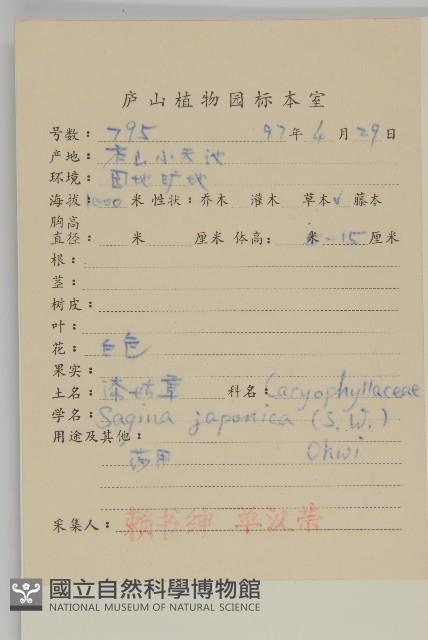 庐山植物园标本室
号数：795 97年4月29日
产地：庐山小天池
环境：园地旷地
海拔：1000米 性状：乔木 灌木 草本✓ 藤本
胸高
直径： 米 厘米 体高： 米 -15厘米
根：
茎：
树皮：
叶：
花：白色
果实：
土名：漆姑草 科名：Caryophyllaceae
学名：Sagina japonica (S.W.)
用途及其他：
药用 Ohwi
采集人：赖书绅 单汉荣
國立自然科學博物館
NATIONAL MUSEUM OF NATURAL SCIENCE